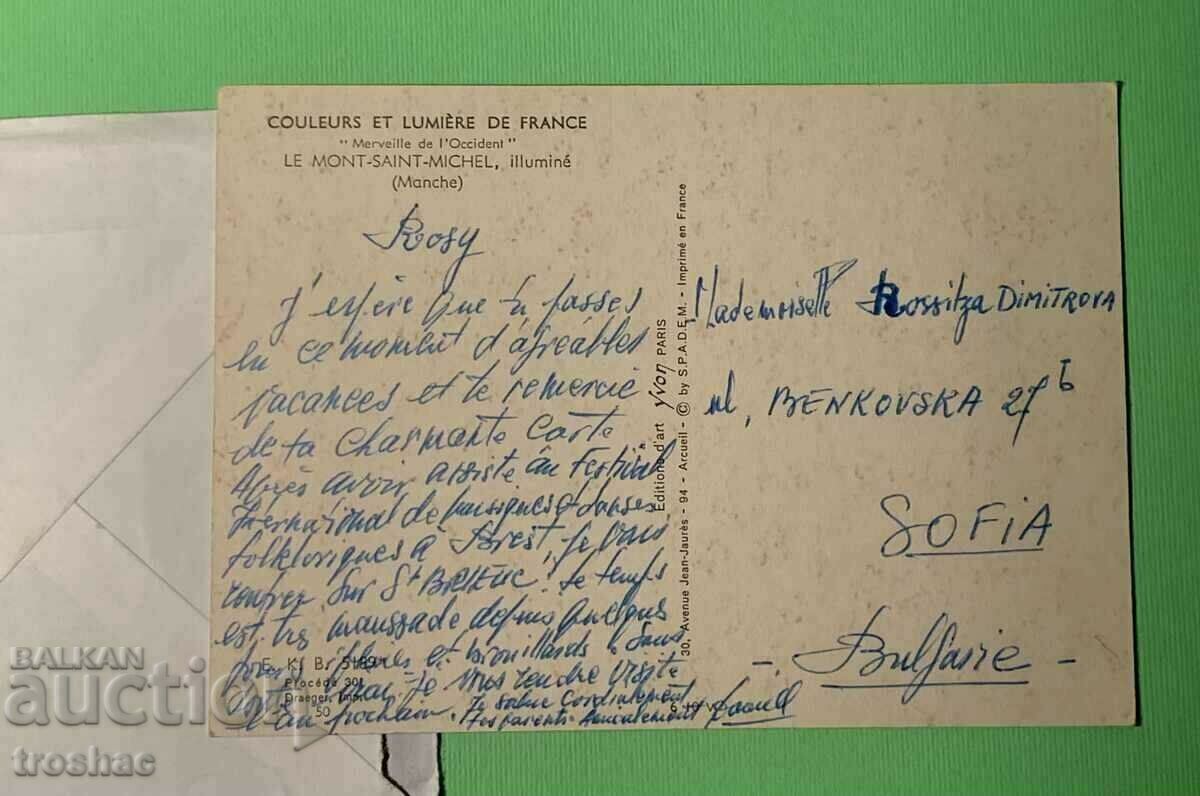 COULEURS ET LUMIÈRE DE FRANCE
"Merveille de l'Occident"
LE MONT-SAINT-MICHEL, illuminé
(Manche)
Rosy
J'espère que tu passes
en ce moment d'agréables
vacances et te remercie
de ta charmante carte
Après avoir assisté au Festival
International de musiques et danses
folkloriques à Brest, je vais
rentrer sur St Brieuc. Le temps
est très maussade depuis quelques
jours, pluies et brouillards. Sans
vous rendre visite
l'an prochain. Je salue Cordialement
tes parents Amicalement
E. K. B. 5189
Procédé 301
Draeger, Imp.
50
Editions d'art yvon PARIS
30, Avenue Jean-Jaurès - 94 - Arcueil - © by S.P.A.D.E.M. - Imprimé en France
Mademoiselle Rossitza DIMITROVA
ul, BENKOVSKA 27 b
SOFIA
- Bulgarie -
BALKAN
auction
troshac